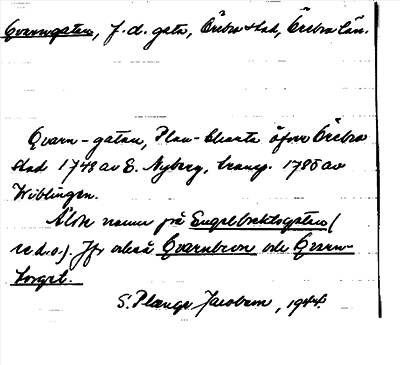 Qvarngatan, f.d. gata, Örebro stad, Örebro län.
Qvarn-gatan, Plan-Charta öfver Örebro
stad 1748 av E. Nyberg, transp. 1785 av
Wiblingen.
Äldre namn på Engelbrektsgatan (
se d.o.). Jfr också Qvarnbron och Qvarn-
torget.
S. Plange Jacobson, 1944.